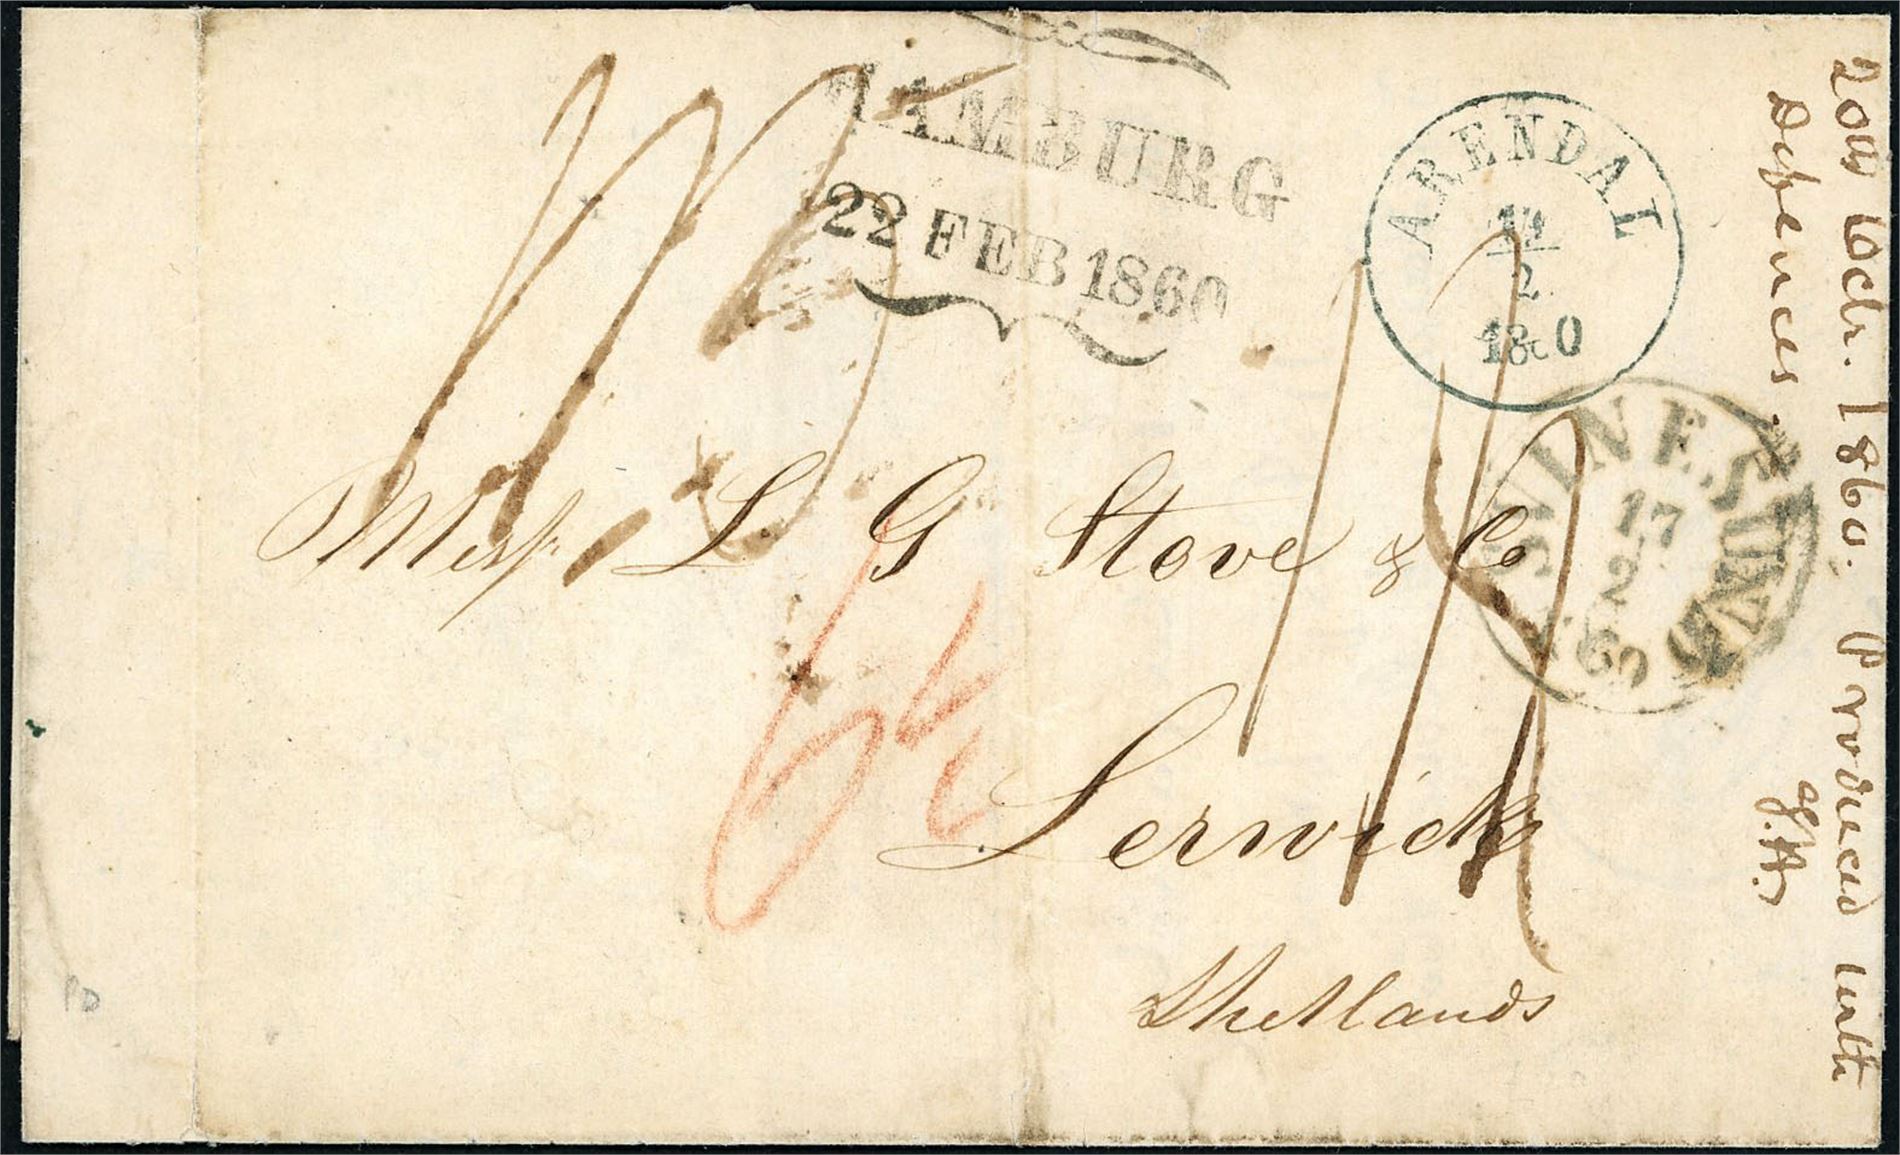 HAMBURG
22 FEB 1860
ARENDAL
14
2
1860
SVINESUND
17
2
1860
Messrs L G Stove & Co
6½
Lerwick
Shetlands
20th Octr. 1860. Produced with
Defences.
J.H.
PD